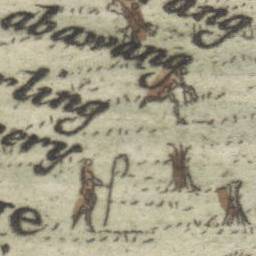 ang
abawang
rling
ery
e